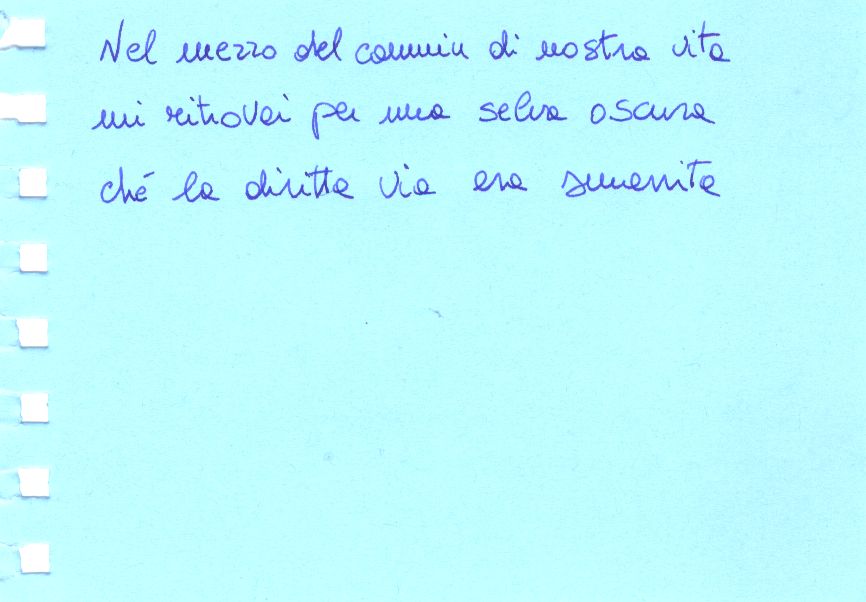 Nel mezzo del cammin di nostra vita
mi ritrovai per una selva oscura
ché la diritta via era smarrita